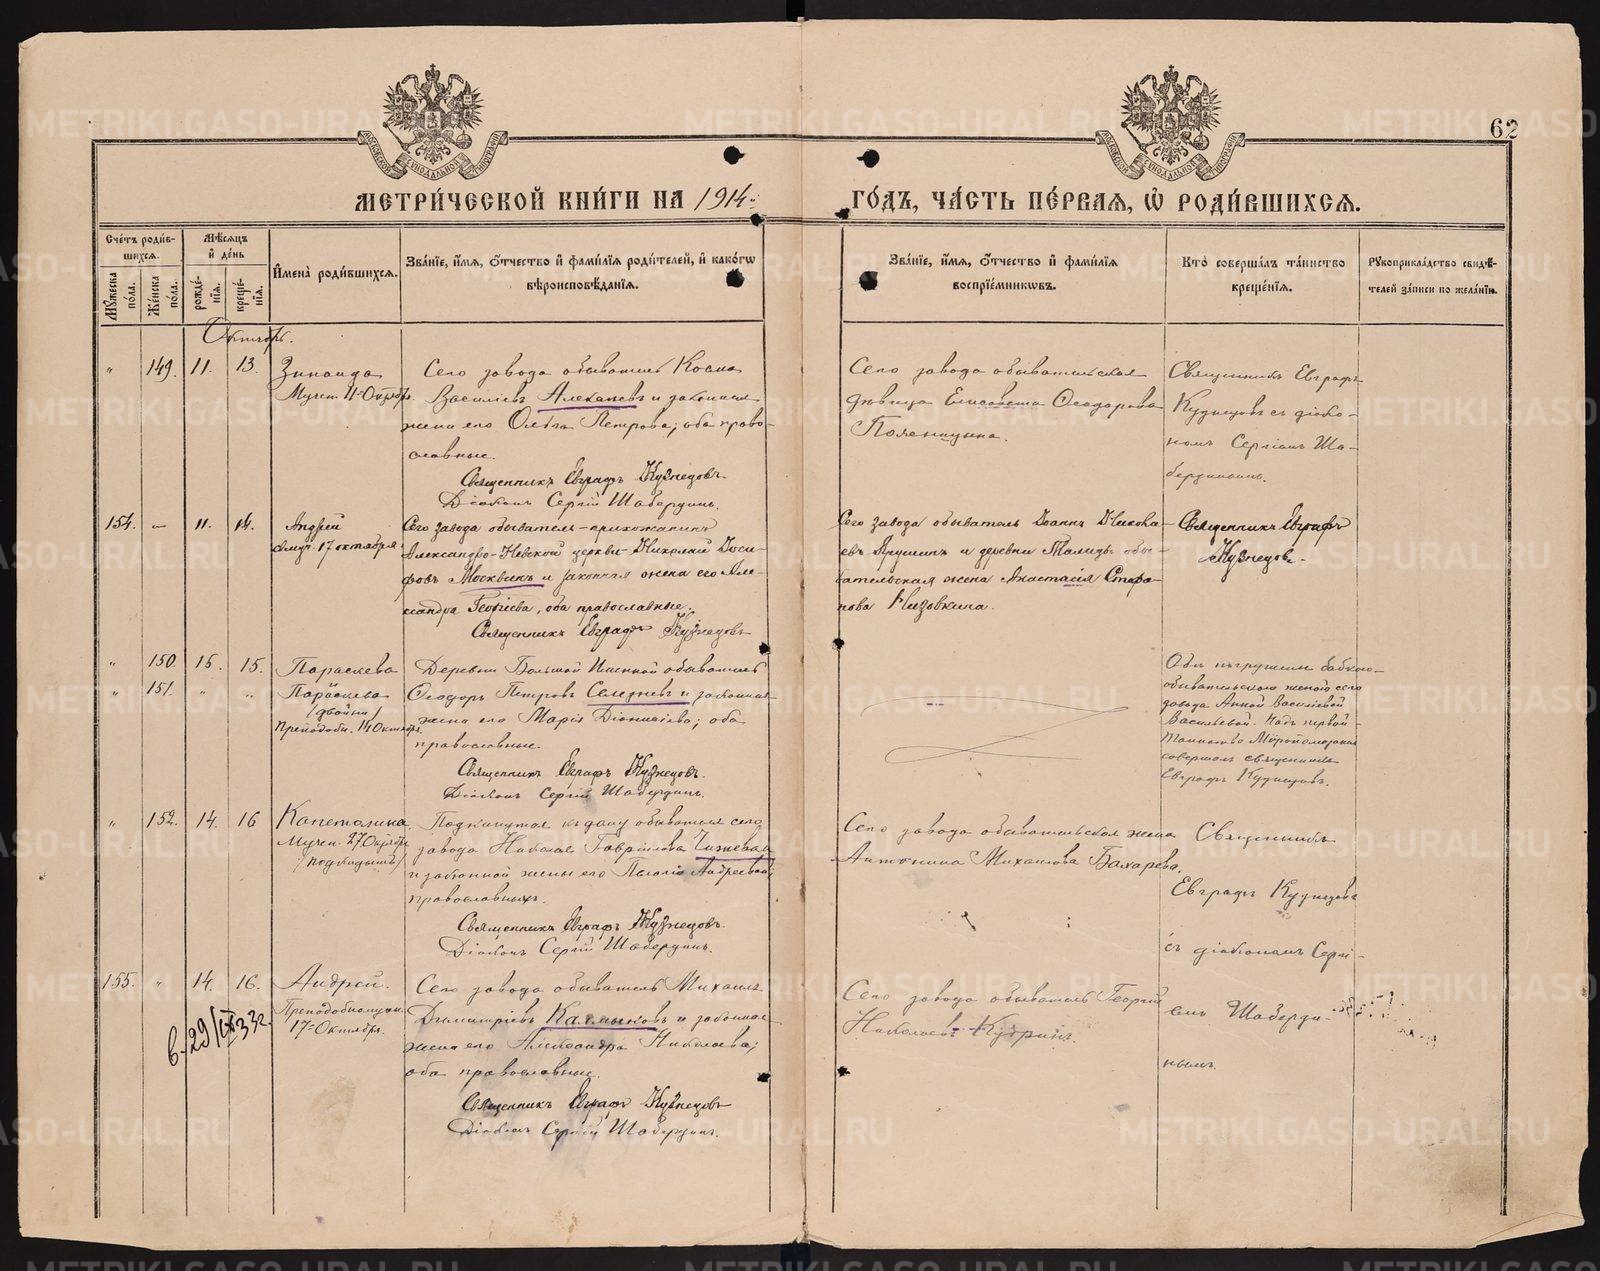 62
МОСКОВСКОЙ СѴНОДАЛЬНОЙ ТИПОГРАФІИ
МОСКОВСКОЙ СѴНОДАЛЬНОЙ ТИПОГРАФІИ
МЕТРИ́ЧЕСКОЙ КНИ́ГИ НА 1914й ГО́ДЪ, ЧА́СТЬ ПЕ́РВАЯ, Ѡ РОДИ́ВШИХСЯ.
Сче́тъ роди́вшихся.
Му́жеска по́ла.
Же́нска по́ла.
Мѣ́сяцъ и де́нь
рожде́нїя.
креще́нїя.
Имена̀ роди́вшихся.
Зва́нїе, и́мя, о́тчество и фами́лїя роди́телей, и како́гѡ вѣроисповѣ́данїя.
Зва́нїе, и́мя, о́тчество и фами́лїя воспрїе́мникѡвъ.
Кто̀ соверша́лъ та́инство креще́нїя.
Рукоприкла́дство свидѣ́телей за́писи по жела́нїю.
Октябрь.
" 149. 11. 13. Зинаида
Мучен. 11 Октября.
Сего завода обыватель Косма
Василіевъ Алекаевъ и законная
жена его Ольга Петрова; оба право-
славные.
Священникъ Евграфъ Кузнецовъ.
Діаконъ Сергій Шабердинъ.
Сего завода обывательская
дѣвица Елисавета Ѳеодорова
Священникъ Евграфъ
Кузнецовъ съ діако-
номъ Сергіемъ Ша-
бердинымъ.
154. — 11. 14. Андрей
17 октября
Сего завода обыватель-прихожанинъ
Александро-Невской церкви Николай Іоси-
фовъ Москвинъ и законная жена его Але-
ксандра Георгіева, оба православные.
Священникъ Евграфъ Кузнецовъ
Сего завода обыватель Іоаннъ Никола-
евъ Ярушинъ и деревни Талицы обы-
вательская жена Анастасія Стефа-
нова Низовкина.
Священникъ Евграфъ
Кузнецовъ.
" 150. 15. 15. Параскева
" 151. " " Параскева
(двойни)
Преподобн. 14 Октября.
Деревни Большой Именной обыватель
Ѳеодоръ Петровъ Селезневъ и законная
жена его Марія Діонисіева; оба
православные.
Священникъ Евграфъ Кузнецовъ.
Діаконъ Сергій Шабердинъ.
Обѣ погружены бабкою-
обывательскою женою сего
завода Анной Василіевой
Васильевой. Надъ первой
таинство Мѵропомазанія
совершалъ священникъ
Евграфъ Кузнецовъ.
" 152. 14. 16 Капетолина
Мучен. 27 Октября
(подкидышъ)
Подкинутая къ дому обывателя сего
завода Николая Гавріилова Чижева
и законной жены его Пелагіи Андреевой;
православныхъ.
Священникъ Евграфъ Кузнецовъ.
Діаконъ Сергій Шабердинъ.
Сего завода обывательская жена
Антонина Михаилова Бахарева.
Священникъ
Евграфъ Кузнецовъ
съ діакономъ Сергі-
емъ Шаберди-
нымъ.
155. " 14. 16. Андрей.
Преподобномучен.
17 Октября.
в. 29/IX 33г.
Сего завода обыватель Михаилъ
Димитріевъ Калмыковъ и законная
жена его Александра Николаева;
оба православные.
Священникъ Евграфъ Кузнецовъ
Діаконъ Сергій Шабердинъ.
Сего завода обыватель Георгій
Николаевъ Кудринъ.
METRIKI.GASO-URAL.RU